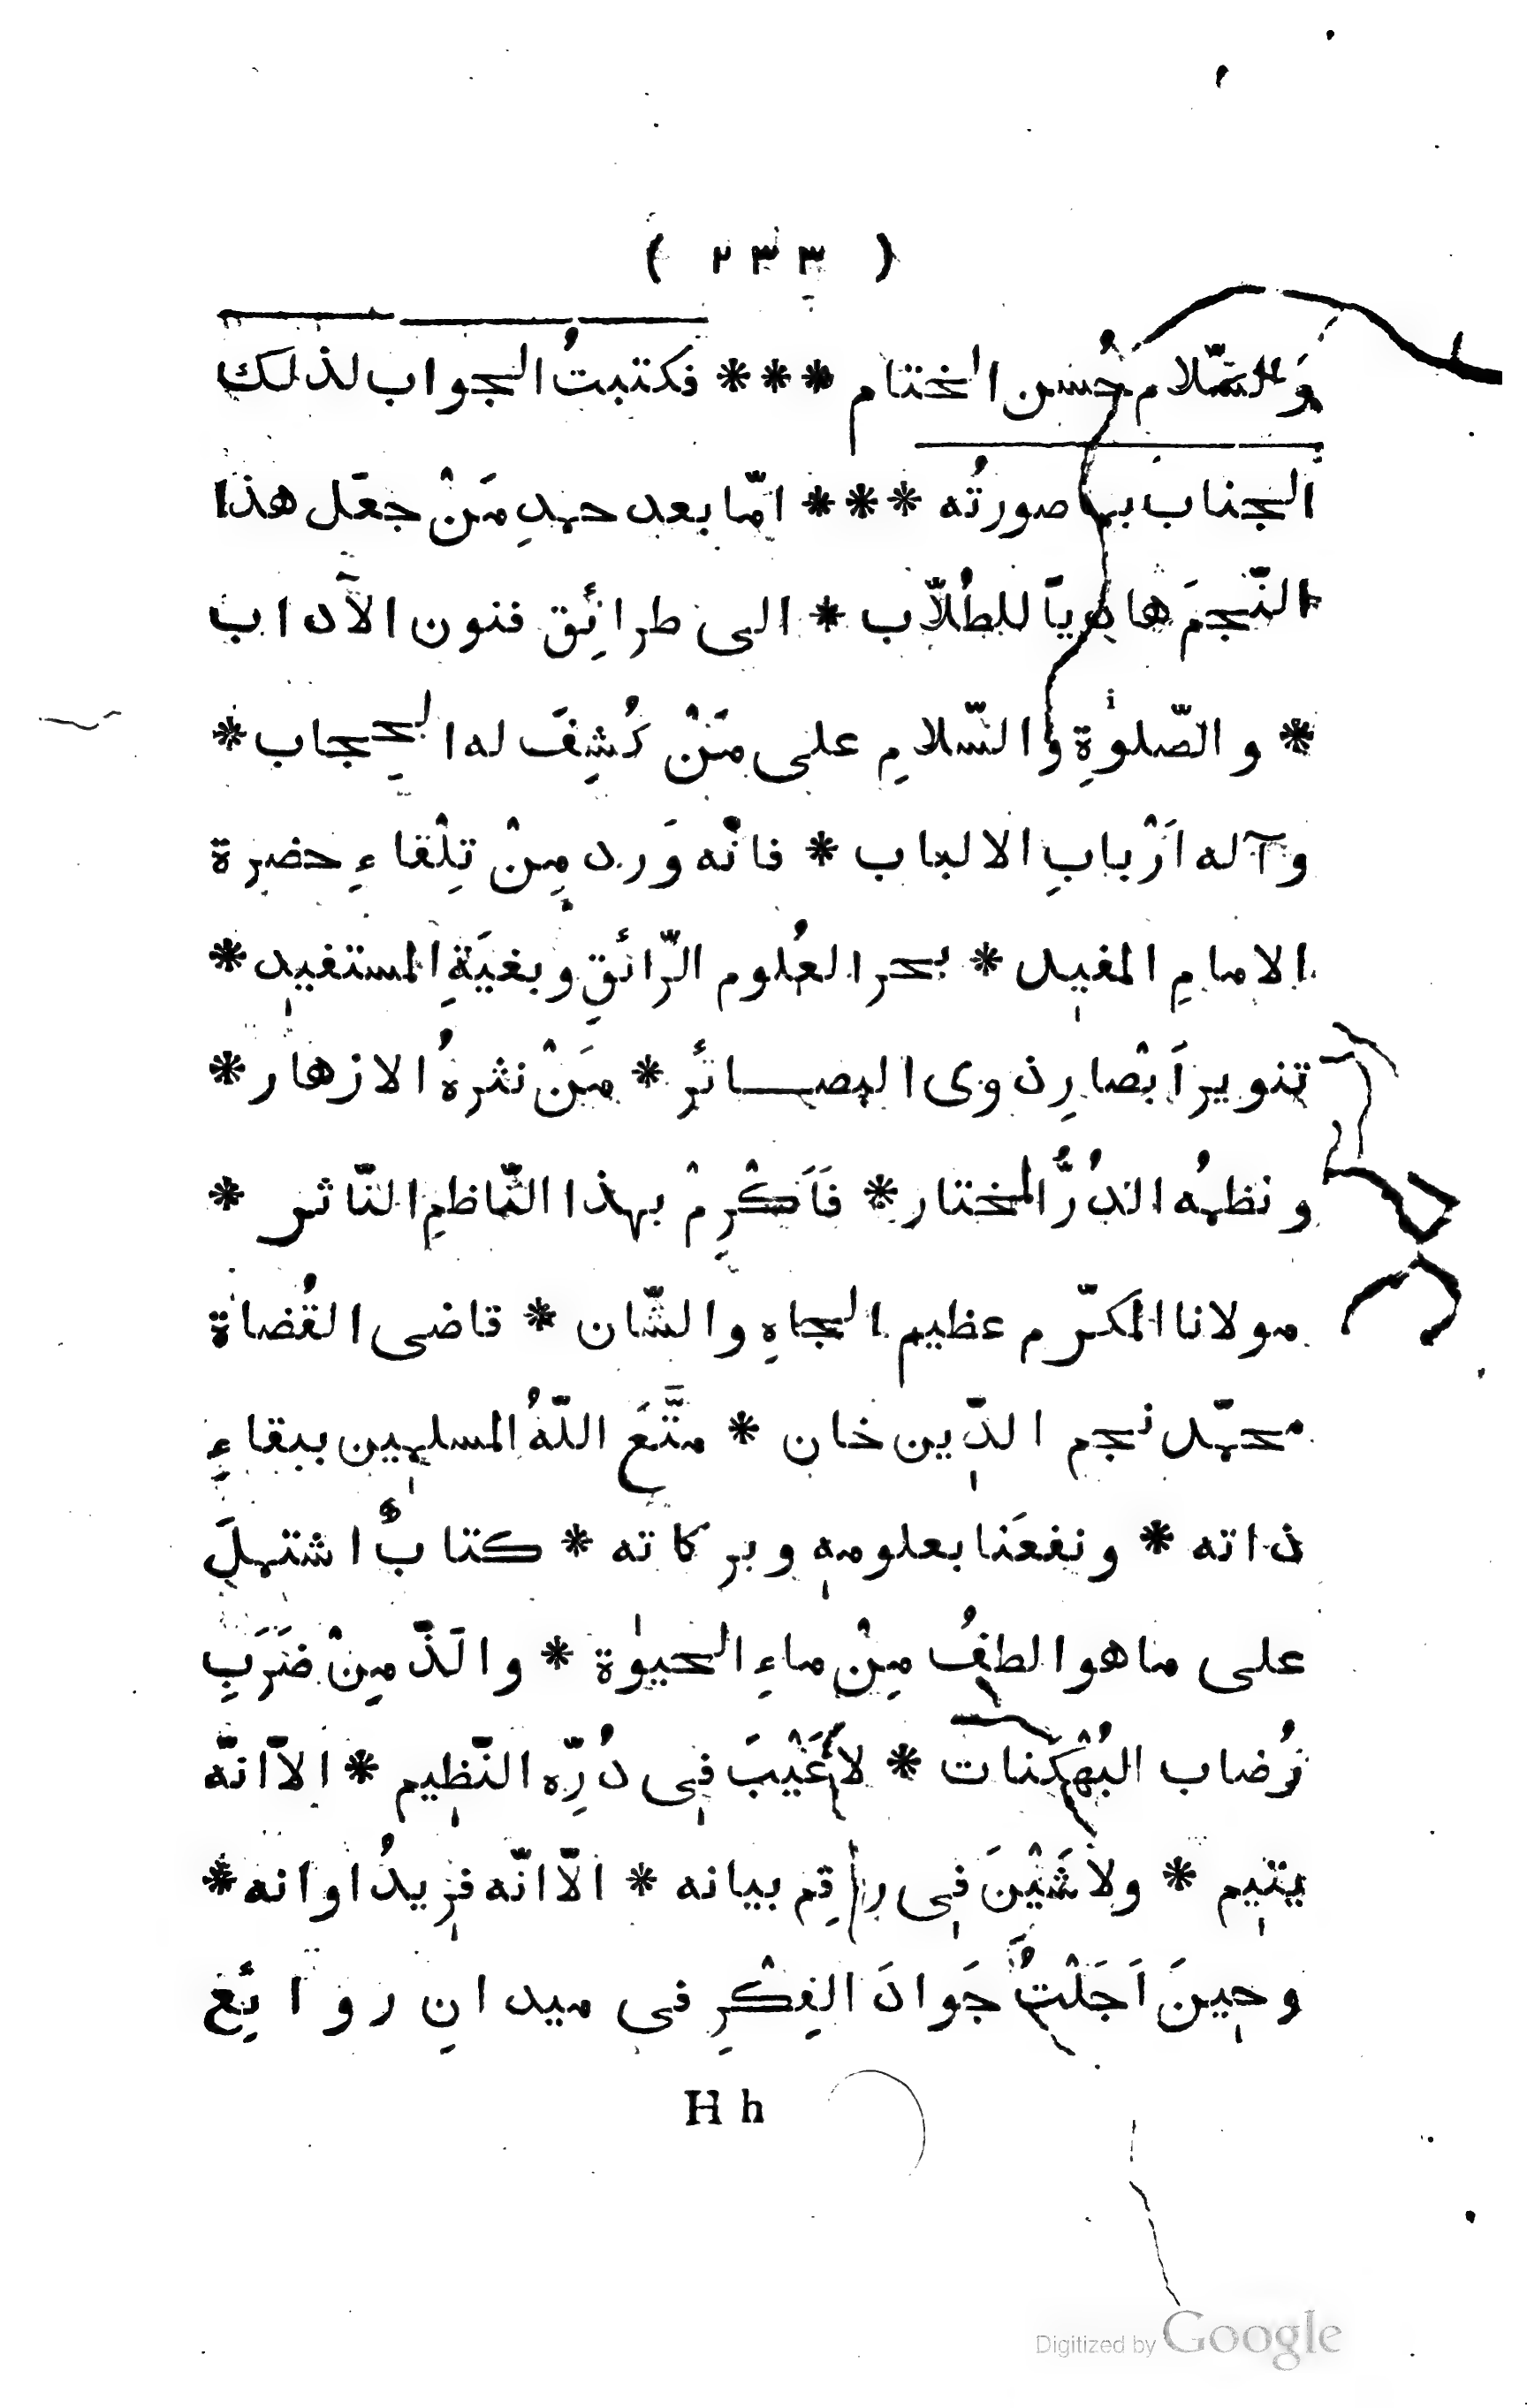 ( ٢٣٣ )
وَالسّلام حُسن الختام *** فكتبتُ الجواب لذلك
الجناب بما صورتُه *** امّا بعد حمدِ مَنْ جعَل هذا
النّجمَ هاديًا للطُلّاب * الى طرائِق فنون الآداب
* والصّلوٰةِ والسّلامِ على مَنْ كُشِفَ له الحِجاب *
وآله اَرْبابِ الالباب * فانّه وَرد مِنْ تِلْقاءِ حضرة
الامامِ المفيد * بحر العُلوم الرّائقِ وبغيَةِ المستفيد *
تنوير اَبْصارِ ذوى البصائر * مَنْ نثرهُ الازهار *
ونظمُه الدُرُّ المختار * فَاَكْرِمْ بهذا النّاظمِ النّاثر *
مولانا المكرّم عظيم الجاهِ والشّان * قاضى القُضاة
محمّد نجم الدّين خان * متَّعَ اللّهُ المسلمين ببقاءِ
ذاته * ونفعَنا بعلومه وبركاته * كتابٌ اشتملَ
على ما هو الطفُ مِنْ ماءِ الحيوٰة * والَذّ مِنْ ضَرَبِ
رُضاب البُهْكَنات * لاعَيْبَ فى دُرِّه النّظيم * الاّ انّه
يتيم * ولا شَيْنَ فى راقِم بيانه * الاّ انّه فريدُ اوانه *
وحينَ اَجَلْتُ جَوادَ الفِكْرِ فى ميدانِ روائِع
H h
Digitized by Google